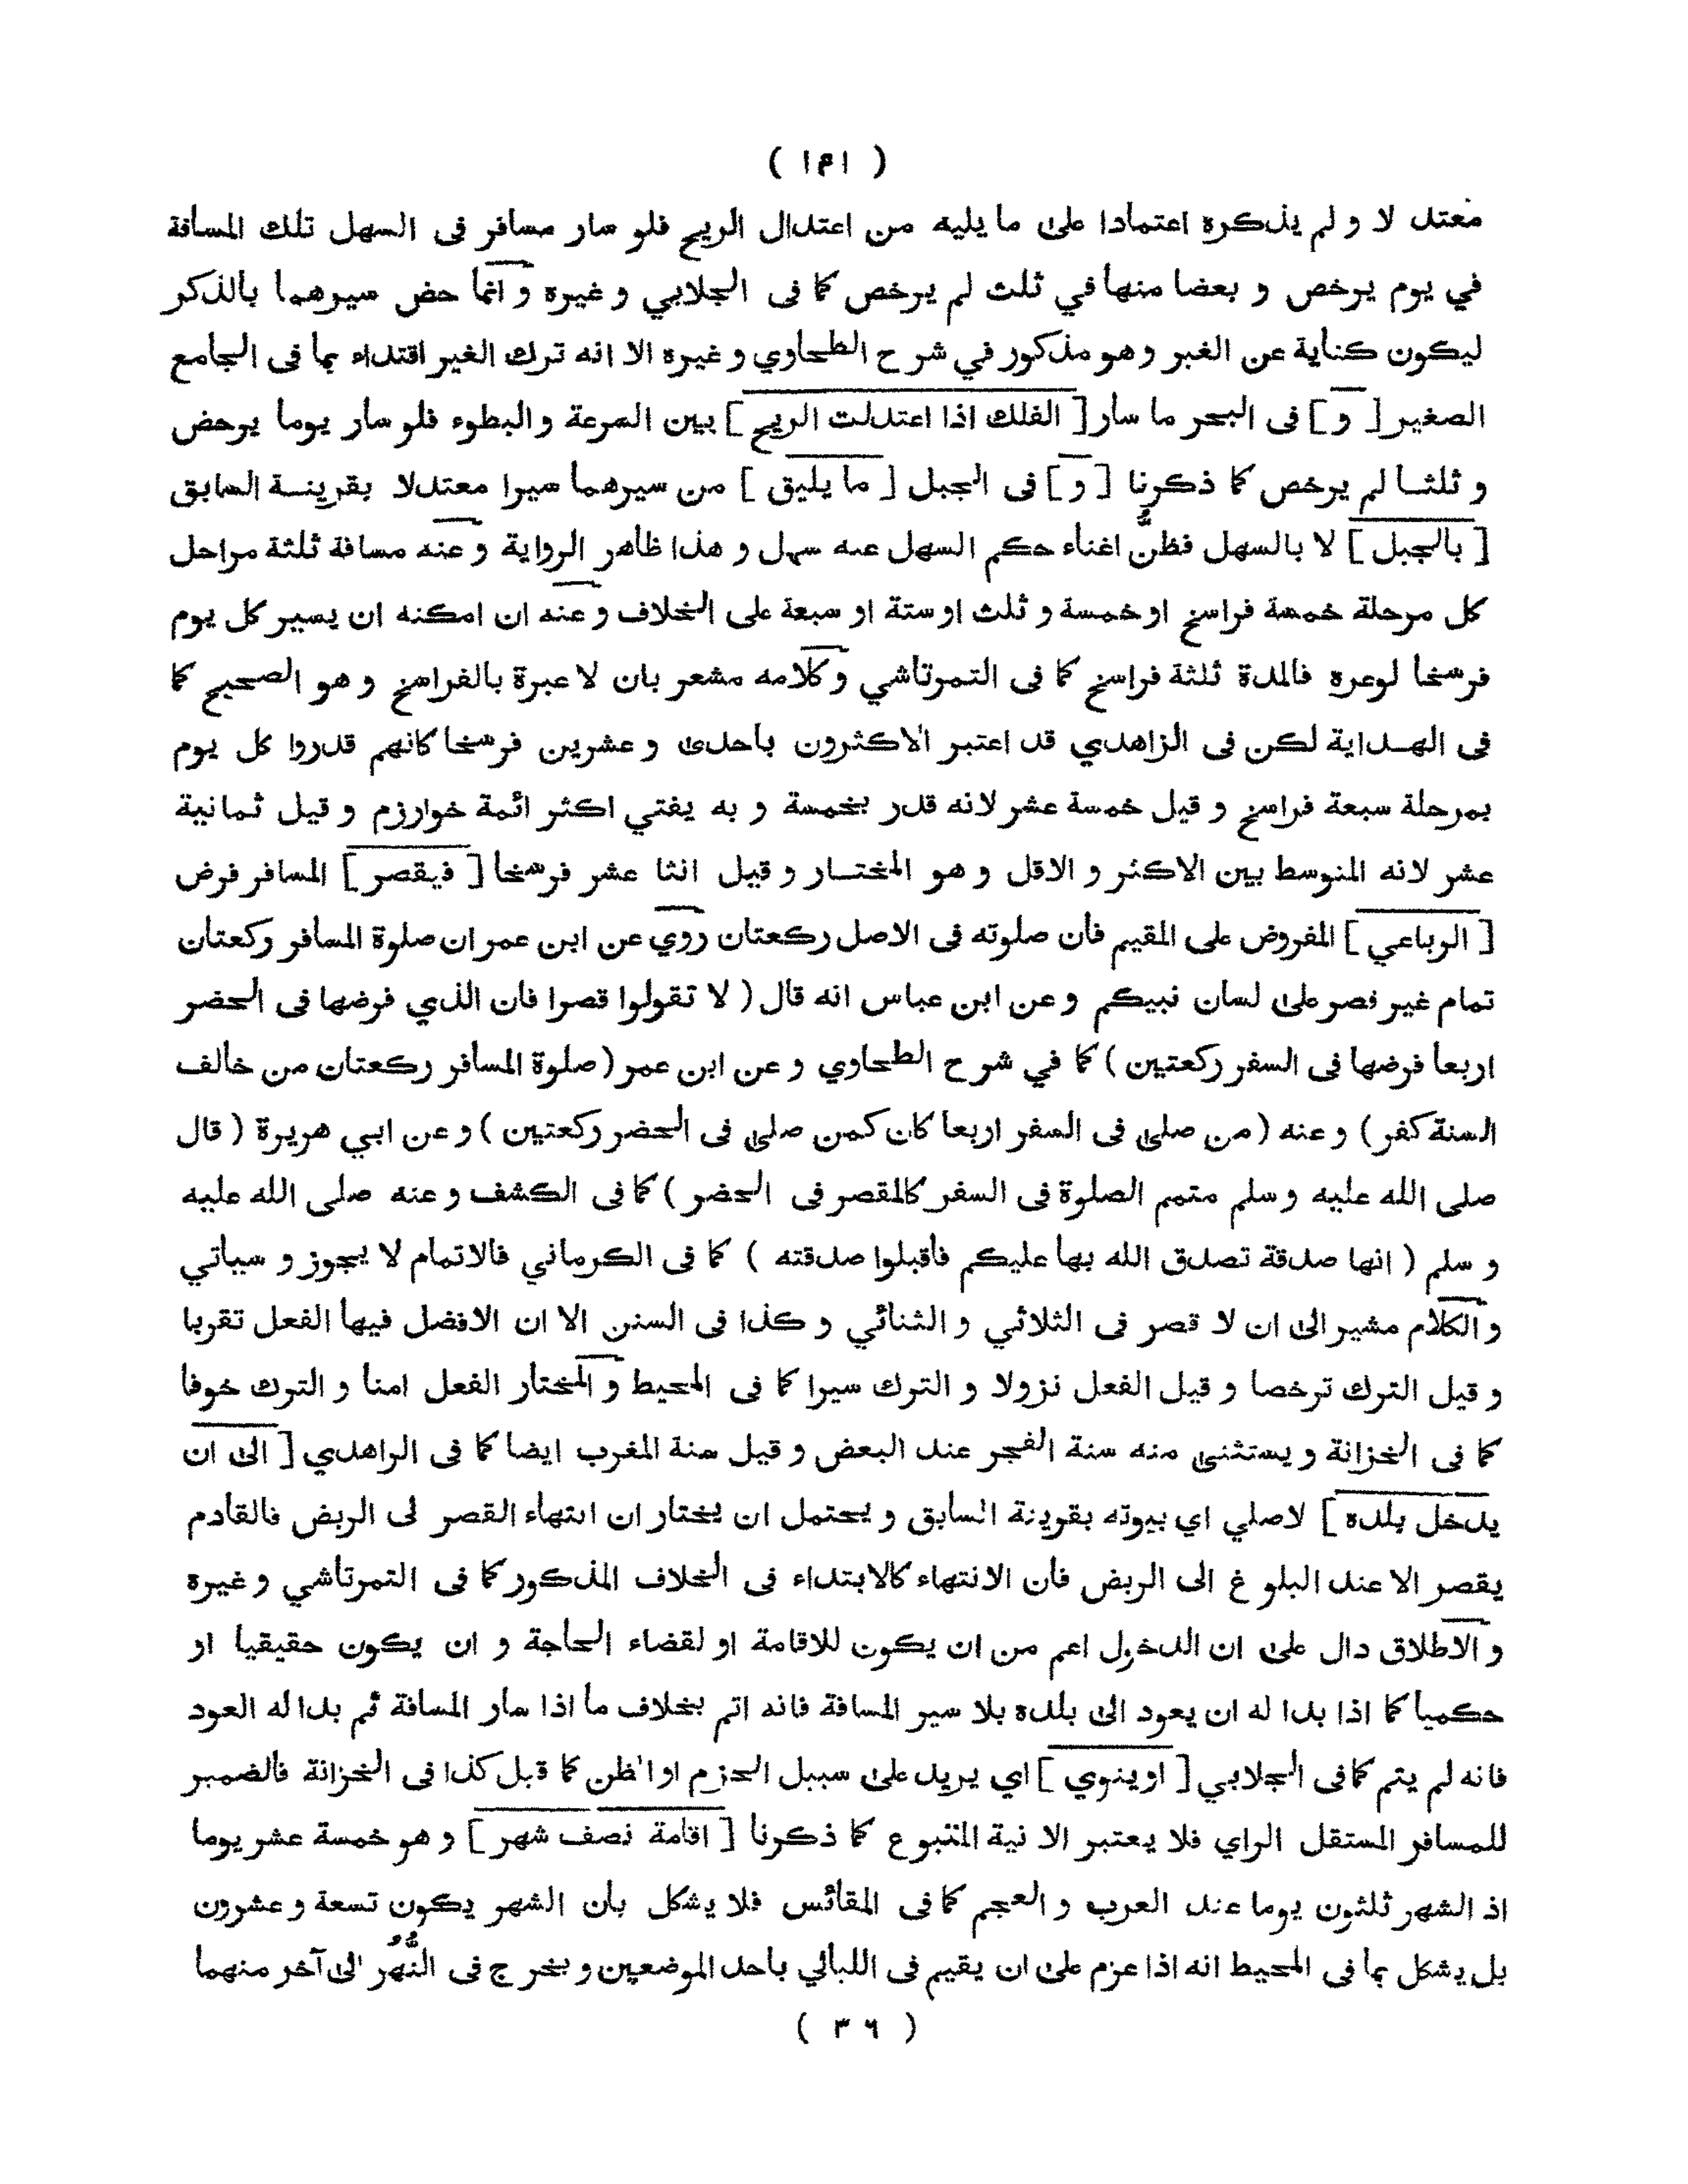 ( ۱۴۱ )
معتد لا و لم يذكره اعتمادا على ما يليه من اعتدال الريح فلو سار مسافر فى السهل تلك المسافة
في يوم يرخص و بعضا منها في ثلث لم يرخص كما فى الجلابي و غيره و انما حض سيرهما بالذكر
ليكون كناية عن الغير و هو مذكور في شرح الطحاوي و غيره الا انه ترك الغير اقتداء بما فى الجامع
الصغير [ و ] فى البحر ما سار [ الفلك اذا اعتدلت الريح ] بين السرعة و البطوء فلو سار يوما يرخص
و ثلثا لم يرخص كما ذكرنا [ و ] فى الجبل [ ما يليق ] من سيرهما سيرا معتدلا بقرينة السابق
[ بالجبل ] لا بالسهل فظن اغناء حكم السهل عنه سهل و هذا ظاهر الرواية و عنه مسافة ثلثة مراحل
كل مرحلة خمسة فراسخ او خمسة و ثلث او ستة او سبعة على الخلاف و عنه ان امكنه ان يسير كل يوم
فرسخا لوعره فالمدة ثلثة فراسخ كما فى التمرتاشي و كلامه مشعر بان لا عبرة بالفراسخ و هو الصحيح كما
فى الهداية لكن فى الزاهدي قد اعتبر الاكثرون باحدى و عشرين فرسخا كانهم قدروا كل يوم
بمرحلة سبعة فراسخ و قيل خمسة عشر لانه قدر بخمسة و به يفتي اكثر ائمة خوارزم و قيل ثمانية
عشر لانه المتوسط بين الاكثر و الاقل و هو المختار و قيل اثنا عشر فرسخا [ فيقصر ] المسافر فرض
[ الرباعي ] المفروض على المقيم فان صلوته فى الاصل ركعتان روي عن ابن عمر ان صلوة المسافر ركعتان
تمام غير قصر على لسان نبيكم و عن ابن عباس انه قال ( لا تقولوا قصرا فان الذي فرضها فى الحضر
اربعا فرضها فى السفر ركعتين ) كما في شرح الطحاوي و عن ابن عمر ( صلوة المسافر ركعتان من خالف
السنة كفر ) و عنه ( من صلى فى السفر اربعا كان كمن صلى فى الحضر ركعتين ) و عن ابي هريرة ( قال
صلى الله عليه و سلم متمم الصلوة فى السفر كالمقصر فى الحضر ) كما فى الكشف و عنه صلى الله عليه
و سلم ( انها صدقة تصدق الله بها عليكم فاقبلوا صدقته ) كما فى الكرماني فالاتمام لا يجوز و سياتي
و الكلام مشير الى ان لا قصر فى الثلاثي و الثنائي و كذا فى السنن الا ان الافضل فيها الفعل تقربا
و قيل الترك ترخصا و قيل الفعل نزولا و الترك سيرا كما فى المحيط و المختار الفعل امنا و الترك خوفا
كما فى الخزانة و يستثنى منه سنة الفجر عند البعض و قيل سنة المغرب ايضا كما فى الزاهدي [ الى ان
يدخل بلده ] لاصلي اي بيوته بقرينة السابق و يحتمل ان يختار ان انتهاء القصر لى الربض فالقادم
يقصر الا عند البلوغ الى الربض فان الانتهاء كالابتداء فى الخلاف المذكور كما فى التمرتاشي و غيره
و الاطلاق دال على ان الدخول اعم من ان يكون للاقامة او لقضاء الحاجة و ان يكون حقيقيا او
حكميا كما اذا بدا له ان يعود الى بلده بلا سير المسافة فانه اتم بخلاف ما اذا سار المسافة ثم بدا له العود
فانه لم يتم كما فى الجلابي [ او ينوي ] اي يريد على سبيل الجزم او الظن كما قبل كذا فى الخزانة فالضمير
للمسافر المستقل الراي فلا يعتبر الا نية المتبوع كما ذكرنا [ اقامة نصف شهر ] و هو خمسة عشر يوما
اذ الشهر ثلثون يوما عند العرب و العجم كما فى المقائس فلا يشكل بان الشهر يكون تسعة و عشرون
بل يشكل بما فى المحيط انه اذا عزم على ان يقيم فى الليالي باحد الموضعين و يخرج فى النُّهُر الى آخر منهما
( ۳۶ )